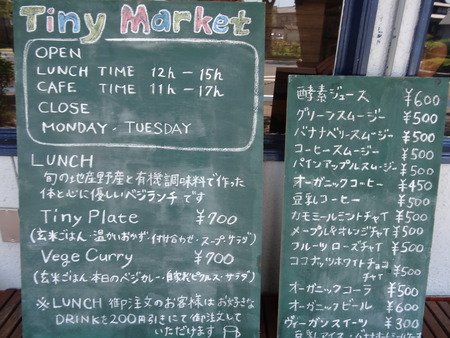 Tiny Market
OPEN
LUNCH TIME 12h - 15h
CAFE TIME 11h - 17h
CLOSE
MONDAY・TUESDAY
LUNCH
旬の地産野産と有機調味料で作った
体と心に優しいベジランチです
Tiny Plate ¥700
(玄米ごはん・温かいおかず・付け合わせ・スープ・サラダ)
Vege Curry ¥700
(玄米ごはん・本日のベジカレー・自家製ピクルス・サラダ)
※LUNCH 御注文のお客様はお好きな
DRINKを200円引きにて御注文して
いただけます
酵素ジュース ¥600
グリーンスムージー ¥500
バナナベリースムージー ¥500
コーヒースムージー ¥500
パインアップルスムージー ¥500
オーガニックコーヒー ¥450
豆乳コーヒー ¥500
カモミールミントチャイ ¥500
メープル&オレンジチャイ ¥500
フルーツローズチャイ ¥500
ココナッツホワイトチョコ
チャイ ¥500
オーガニックコーラ ¥500
オーガニックビール ¥600
ヴィーガンスイーツ ¥300
豆乳アイス・バナナ